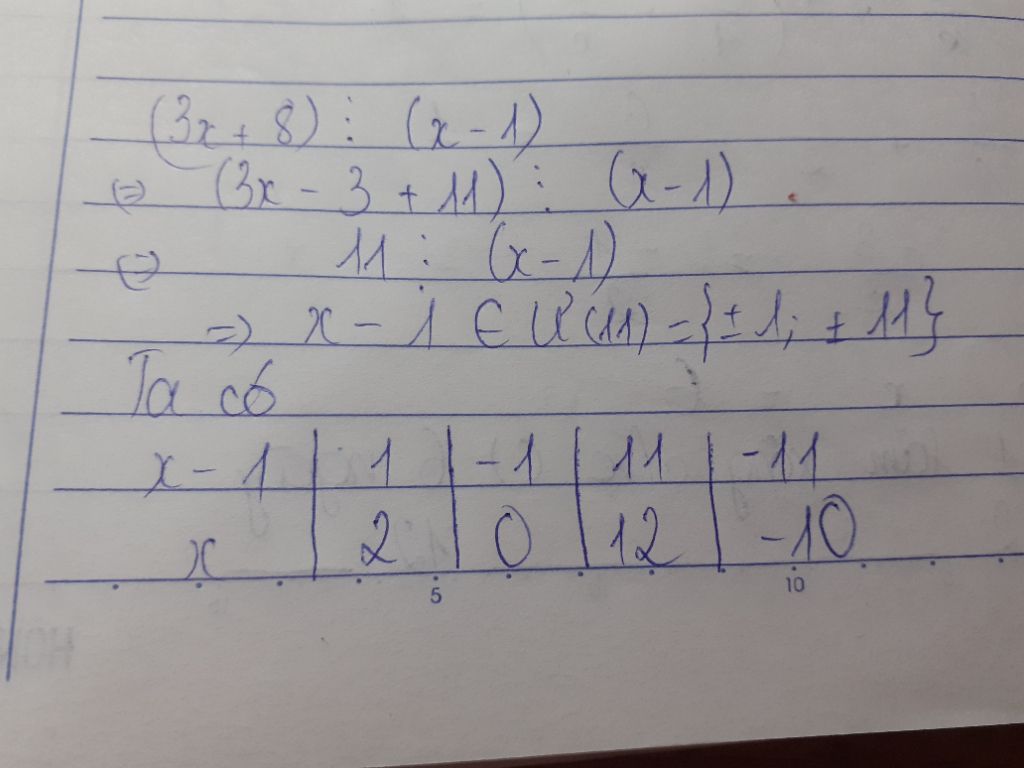 (3x + 8) ⋮ (x - 1)
⇔ (3x - 3 + 11) ⋮ (x - 1)
⇔ 11 ⋮ (x - 1)
⇒ x - 1 ∈ Ư(11) = {± 1; ± 11}
Ta có
x - 1 | 1 | -1 | 11 | -11
x | 2 | 0 | 12 | -10
5 10